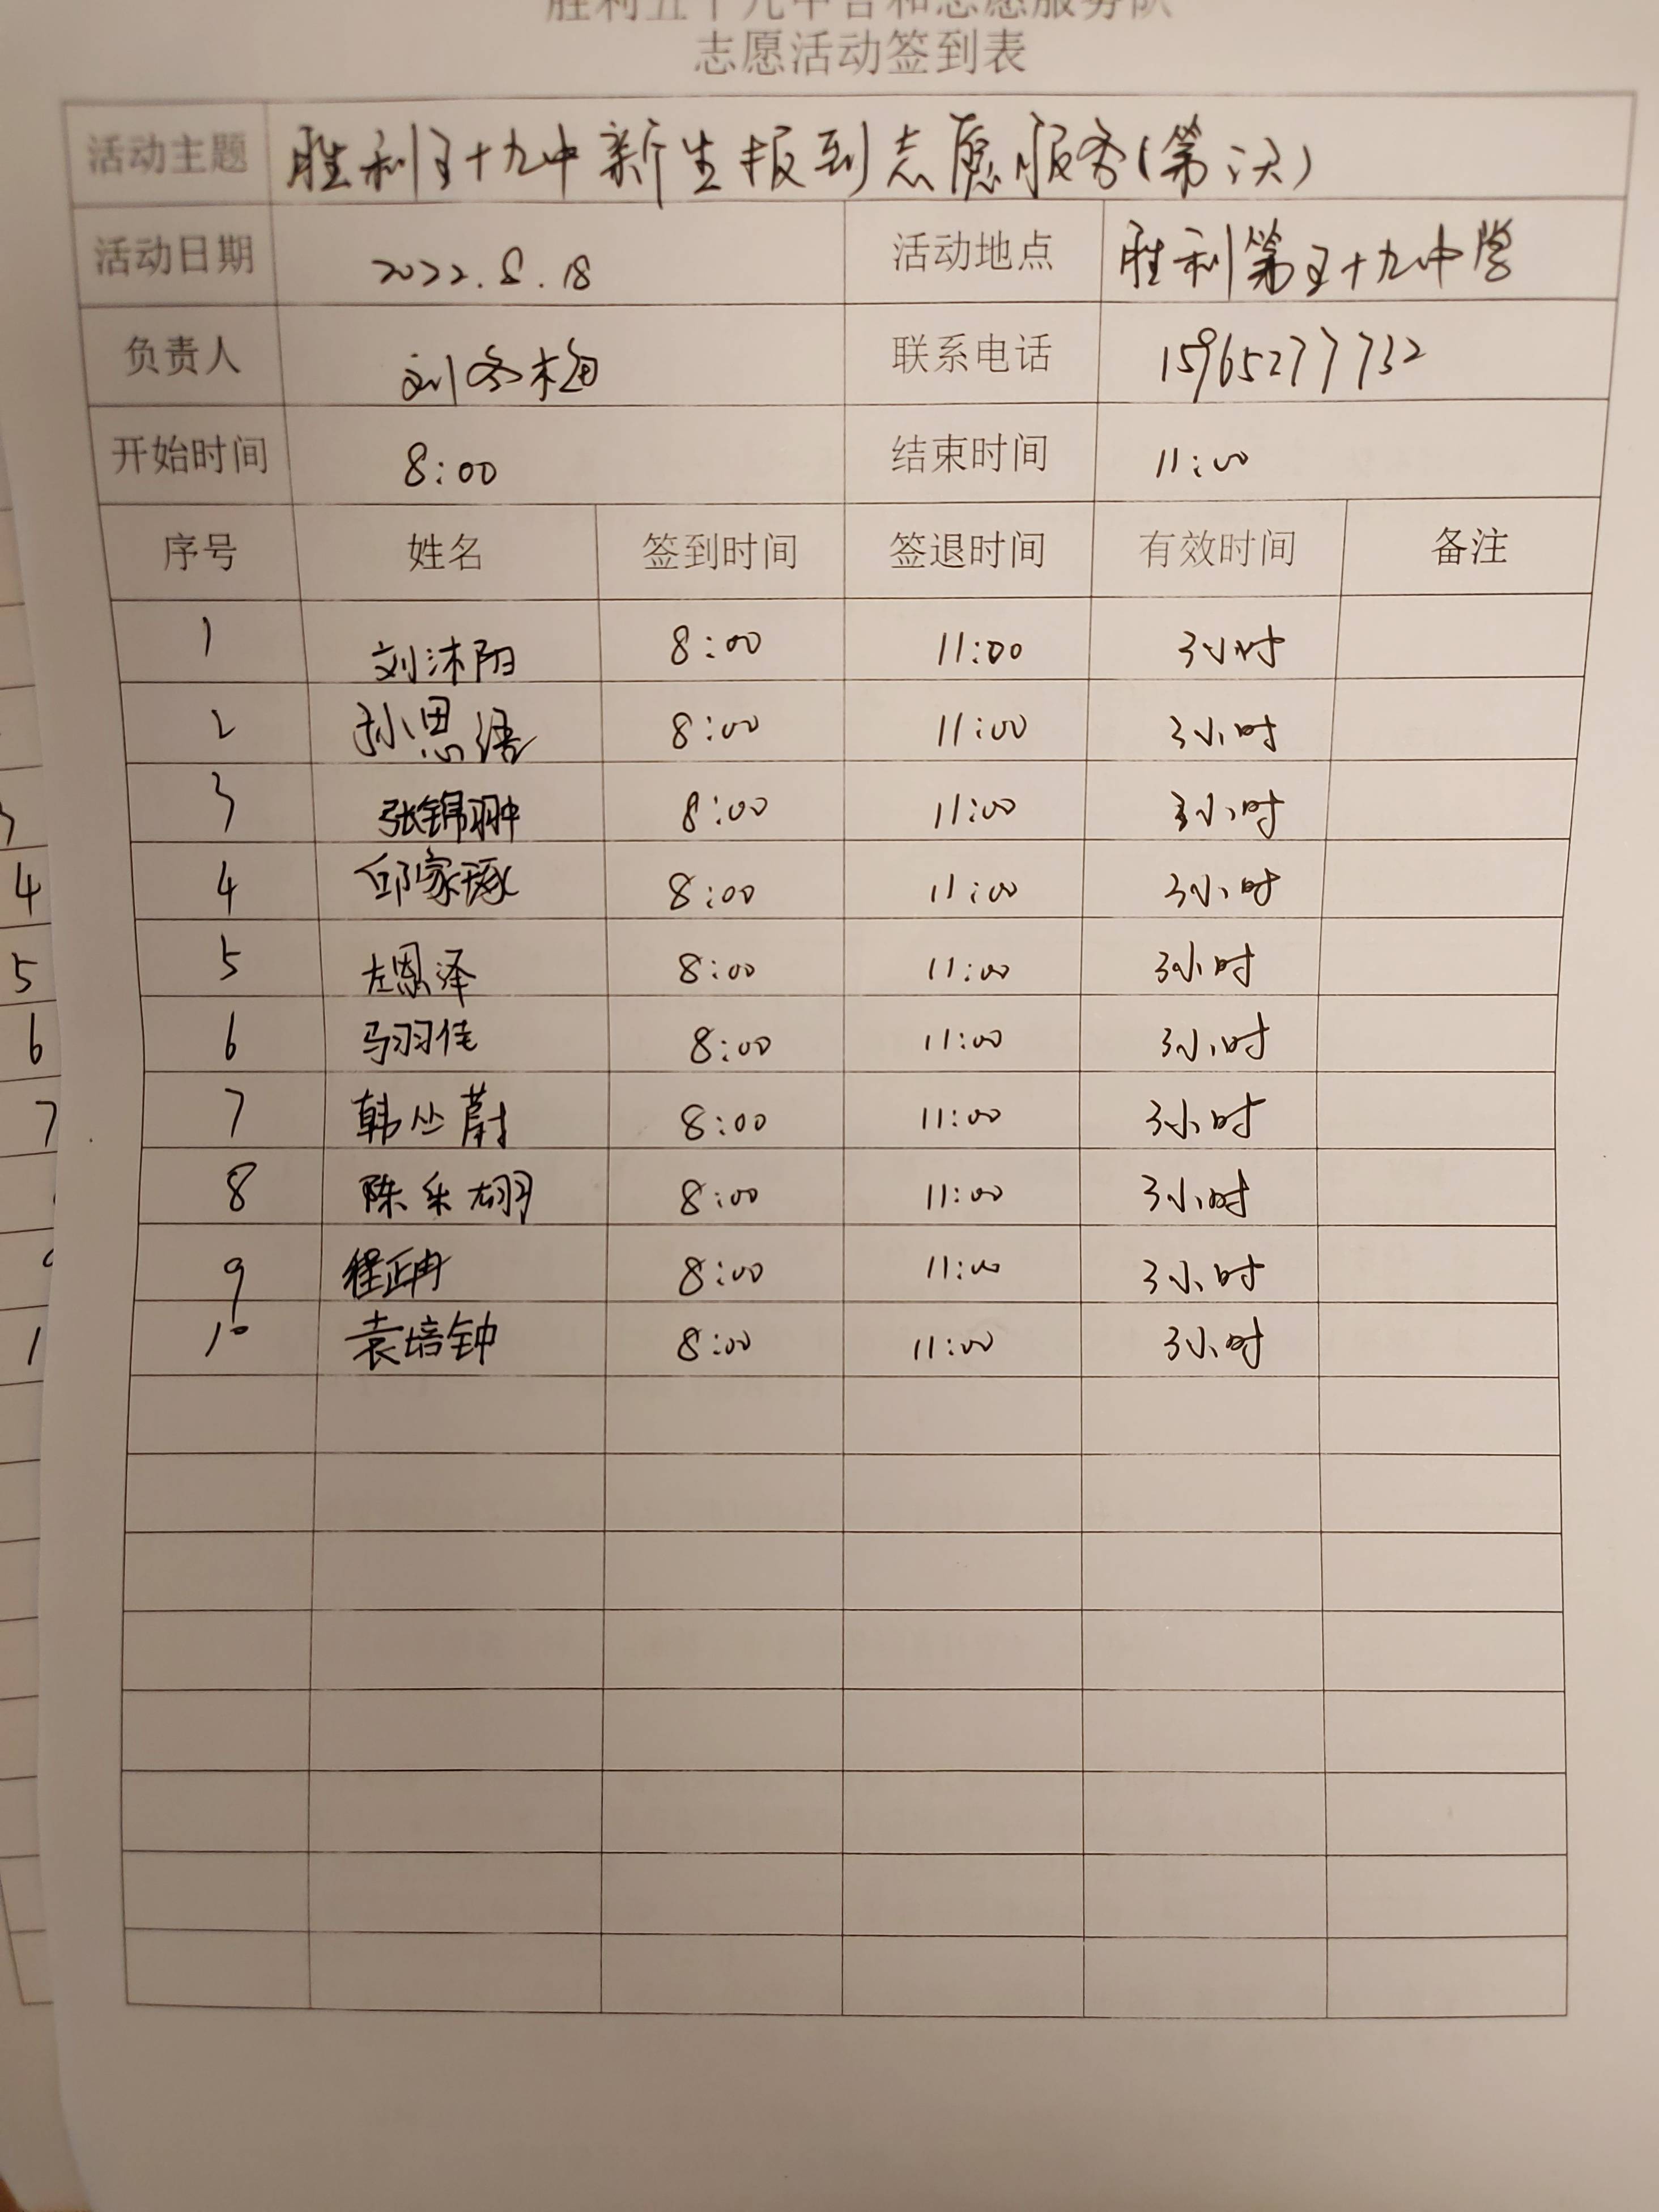 胜利五十九中合和志愿服务队
志愿活动签到表
活动主题 胜利五十九中新生报到志愿服务(第二天)
活动日期 2022.8.18 活动地点 胜利第五十九中学
负责人 刘冬梅 联系电话 15965277732
开始时间 8:00 结束时间 11:00
序号 姓名 签到时间 签退时间 有效时间 备注
1 刘沐阳 8:00 11:00 3小时
2 孙思语 8:00 11:00 3小时
3 张锦翀 8:00 11:00 3小时
4 邱家琢 8:00 11:00 3小时
5 左恩泽 8:00 11:00 3小时
6 马羽佳 8:00 11:00 3小时
7 韩丛蔚 8:00 11:00 3小时
8 陈采翃 8:00 11:00 3小时
9 程正冉 8:00 11:00 3小时
10 袁培钟 8:00 11:00 3小时
4
5
6
7
1